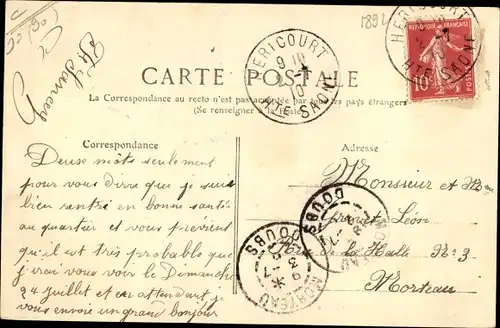 1892
HÉRICOURT
HTE SAÔNE
HÉRICOURT
9 10
10
HTE SAÔNE
RÉPUBLIQUE FRANÇAISE
10
POSTES
CARTE POSTALE
La Correspondance au recto n'est pas acceptée par tous les pays étrangers
(Se renseigner à la Poste)
Correspondance
Adresse
Deux môts seulement
pour vous dirra que je suis
bien rentré en bonne santée
au quartier et vous prévient
qu'il est très probable que
j'irai vous voir le Dimanche
24 Juillet et en attendant je
vous envoie un grand bonjour
Monsieur et M
Léon
Rue de la Halle No 3
Morteau
DOUBS
MORTEAU
DOUBS